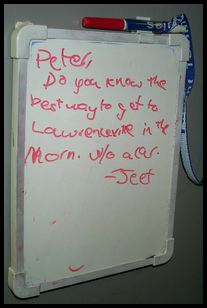 Peter,
Do you know the
best way to get to
Lawrenceville in the
Morn. w/o a car.
-Jeet